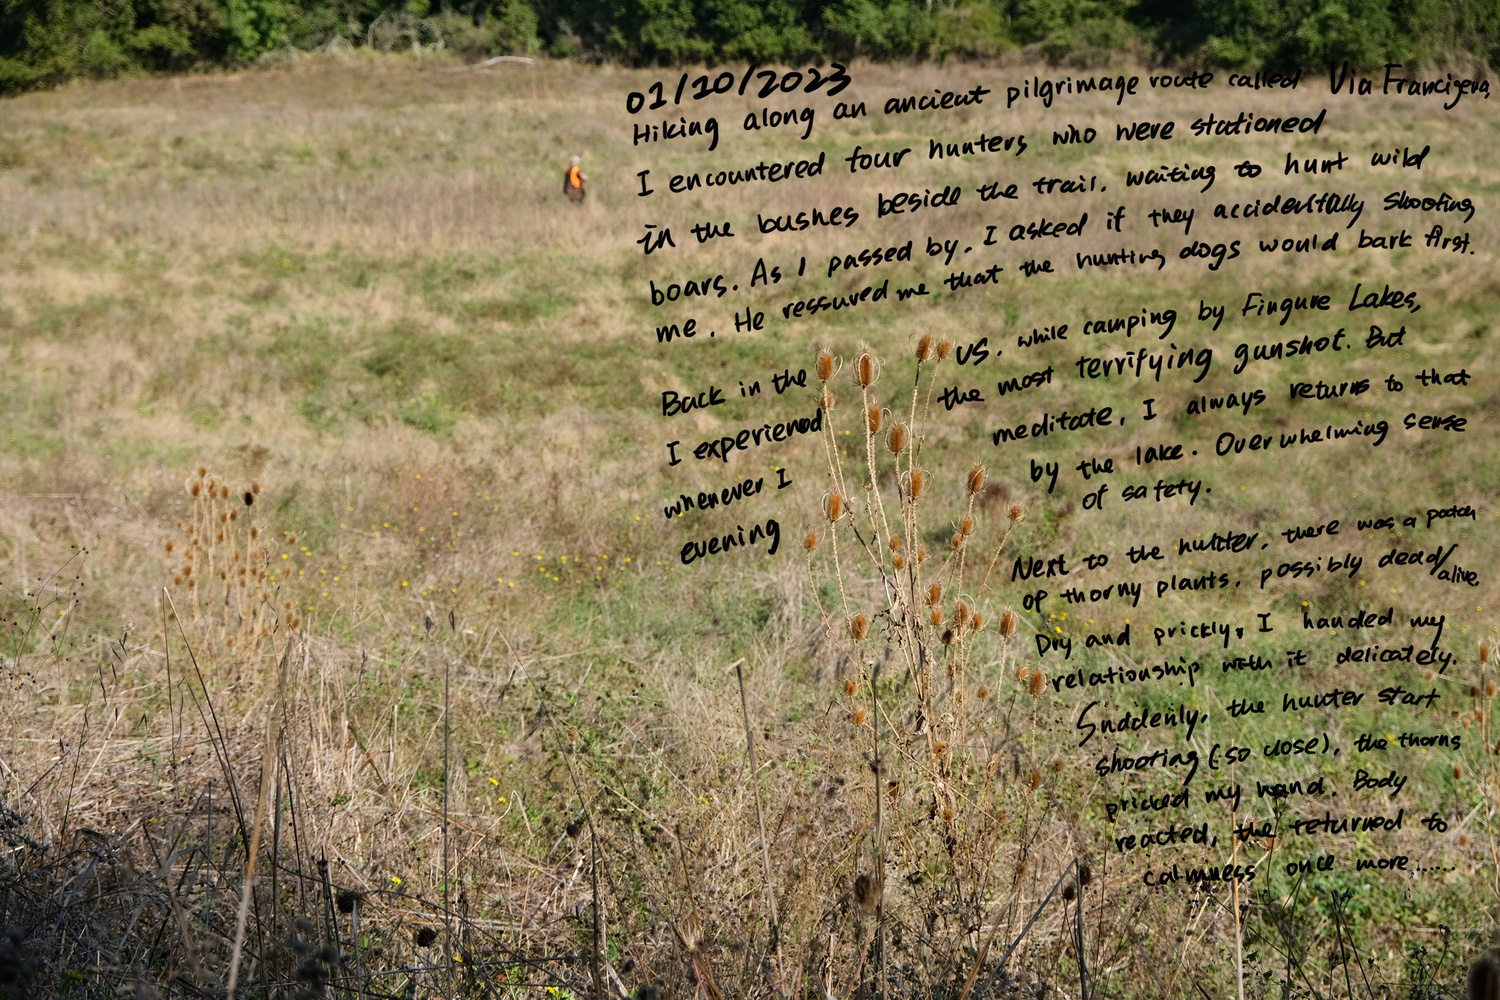 01/10/2023
Hiking along an ancient pilgrimage route called Via Francigena,
I encountered four hunters who were stationed
in the bushes beside the trail. waiting to hunt wild
boars. As I passed by, I asked if they accidentally shooting
me. He ressured me that the hunting dogs would bark first.
Back in the US, while camping by Fingure Lakes,
I experienced the most terrifying gunshot. But
whenever I meditate, I always returns to that
evening by the lake. Overwhelming sense
of safety.
Next to the hunter, there was a patch
of thorny plants, possibly dead/
alive.
Dry and prickly, I handed my
relationship with it delicately.
Suddenly, the hunter start
shooting (so close), the thorns
pricked my hand. Body
reacted, the returned to
calmness once more......